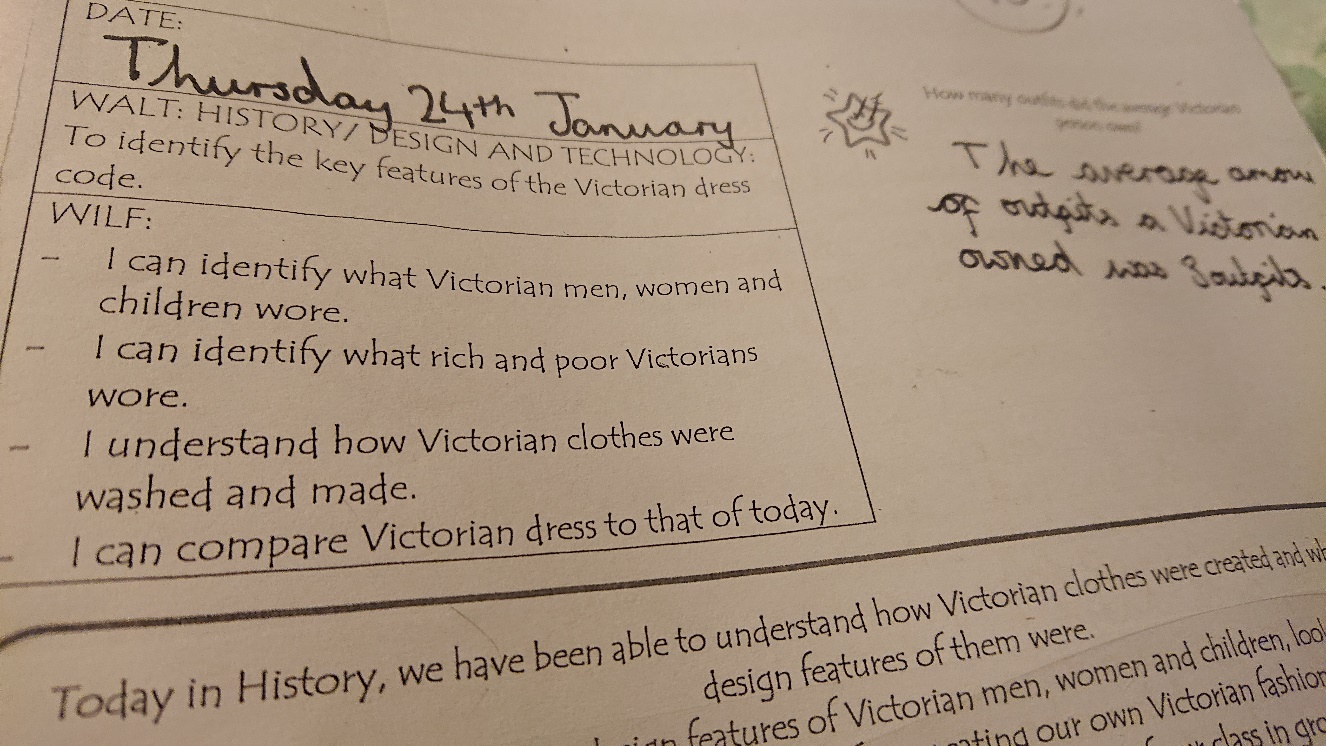 DATE:
Thursday 24th January
WALT: HISTORY/ DESIGN AND TECHNOLOGY:
To identify the key features of the Victorian dress
code.
WILF:
- I can identify what Victorian men, women and
children wore.
- I can identify what rich and poor Victorians
wore.
- I understand how Victorian clothes were
washed and made.
- I can compare Victorian dress to that of today.
How many outfits did the average Victorian
person own?
The average amou
of outgits a Victorian
owned was 3 outgits.
Today in History, we have been able to understand how Victorian clothes were created and wh
design features of them were.
features of Victorian men, women and children, loo
our own Victorian fashion
class in gro